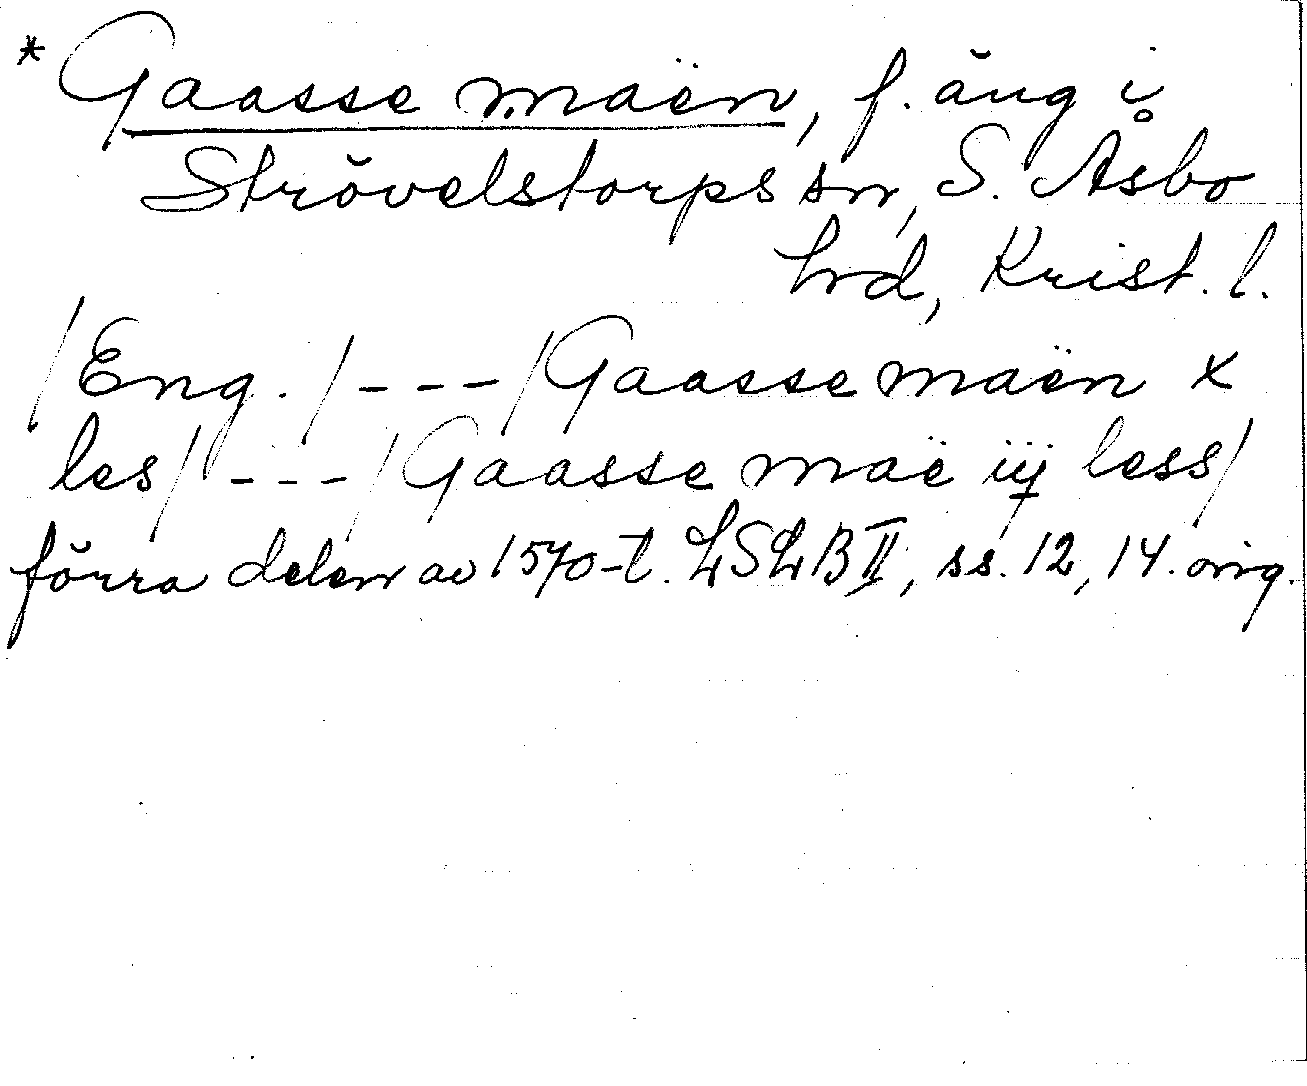 * Gaasse maën, f. äng i
Strövelstorps sn, S. Åsbo
hrd, Krist. l.
/Eng./ --- /Gaasse maën x
les/ --- /Gaasse maë iij less/
förra delen av 1570-t. LSLB II, ss. 12, 14. orig.